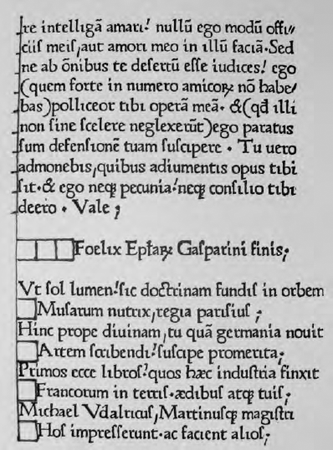 re intelligā amari! nullū ego modū offi//
ciis meis, aut amori meo in illū faciā. Sed
ne ab ōnibus te desertū esse iudices! ego
(quem forte in numero amicoꝝ nō habe/
bas) polliceor tibi operā meā. &(qđ illi
non sine scelere neglexerūt) ego paratus
sum defensionē tuam suscipere. Tu uero
admonebis, quibus adiumentis opus tibi
sit. & ego neqꝫ pecunia! neqꝫ consilio tibi
deero. Vale;
Foelix Epl̄aꝝ Gasparini finis;
Vt sol lumen! sic doctrinam fundis in orbem
Musarum nutrix, regia parisius;
Hinc prope diuinam, tu quā germania nouit
Artem scribendi! suscipe promerita;
Primos ecce libros! quos hæc industria finxit
Francorum in terris. ædibus atqꝫ tuis;
Michael Vdalricus, Martinusqꝫ magistri
Hos impresserunt. ac facient alios;